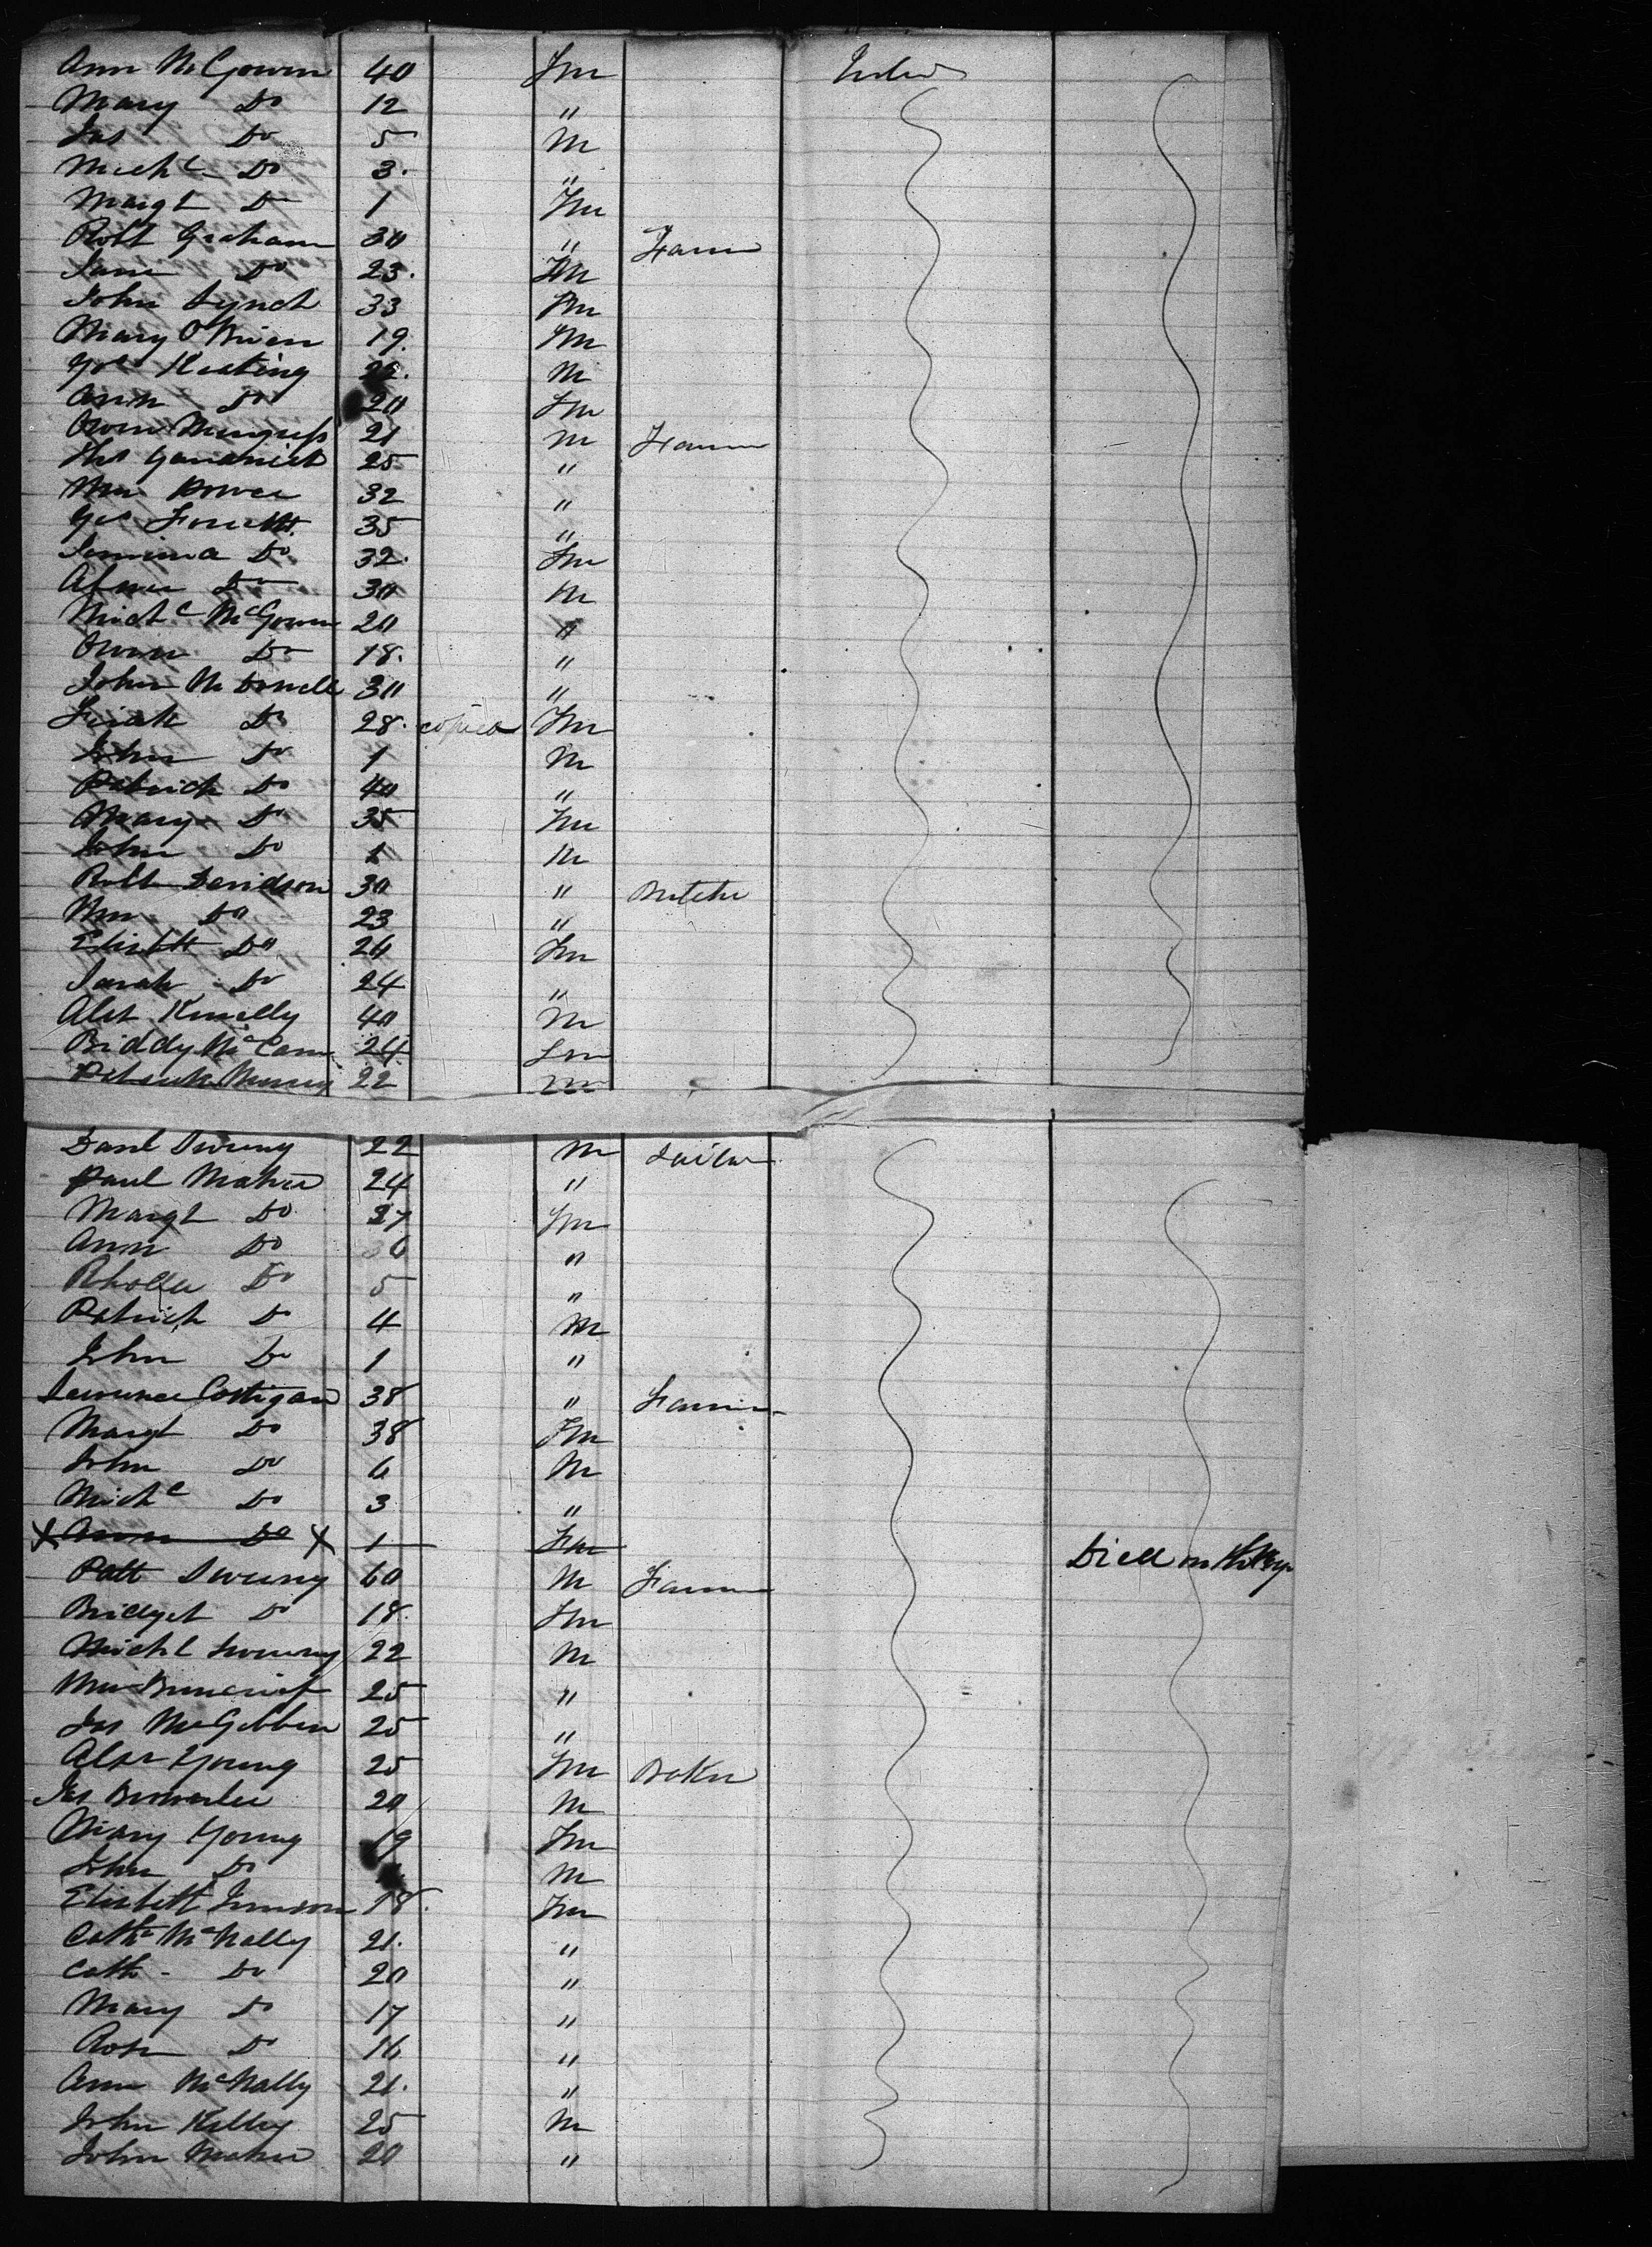 Ann McGowen 40 Fm
Mary Do 12 "
Jas Do 5 M
Michl Do 3. "
Margt Do 1 Fm
Robt Graham 30 " Farm
Jane Do 23. Fm
John Lynch 33 Fm
Mary O'Brien 19. Fm
Keating 22. M
Ann Do 20 Fm
Owen 21 M Farm
Thos 25 "
Wm Power 32 "
Geo 35 "
Jemima Do 32. Fm
Abner Do 30 M
Michl McGowen 20 "
Owen Do 18. "
John McDonell 30 "
Do 28. copied Fm
John Do 1 M
Patrick Do 40 "
Mary Do 35 Fm
John Do 1 M
Robt Davidson 30 " Butche
Wm Do 23 "
Elizbth Do 20 Fm
Sarah Do 24 "
Alex Kenelly 40 M
Biddy McCann 24 Fm
Patrick Murray 22 M
Danl Sweeny 22 M Tailor
Paul Maher 24 "
Margt Do 27 Fm
Ann Do 36 "
Do 5 "
Patrick Do 4 M
John Do 1 "
Lawrence Costigan 38 " Farmer
Margt Do 38 Fm
John Do 6 M
Michl Do 3 "
X Ann Do X 1 Fm Died on
Patt Sweeny 60 M Farm
Bridget Do 18. Fm
Michl Sweeny 22 M
Wm 25 "
Jas McGibben 25 "
Alexr Young 25 Fm Baker
Jas Brownlee 20 M
Mary Young 19 Fm
John Do M
Elizbeth 18. Fm
Cath McNally 21. "
Cath - Do 20 "
Mary Do 17 "
Rose Do 16 "
Ann McNally 21. "
John Kelley 25 M
John Maher 20 "